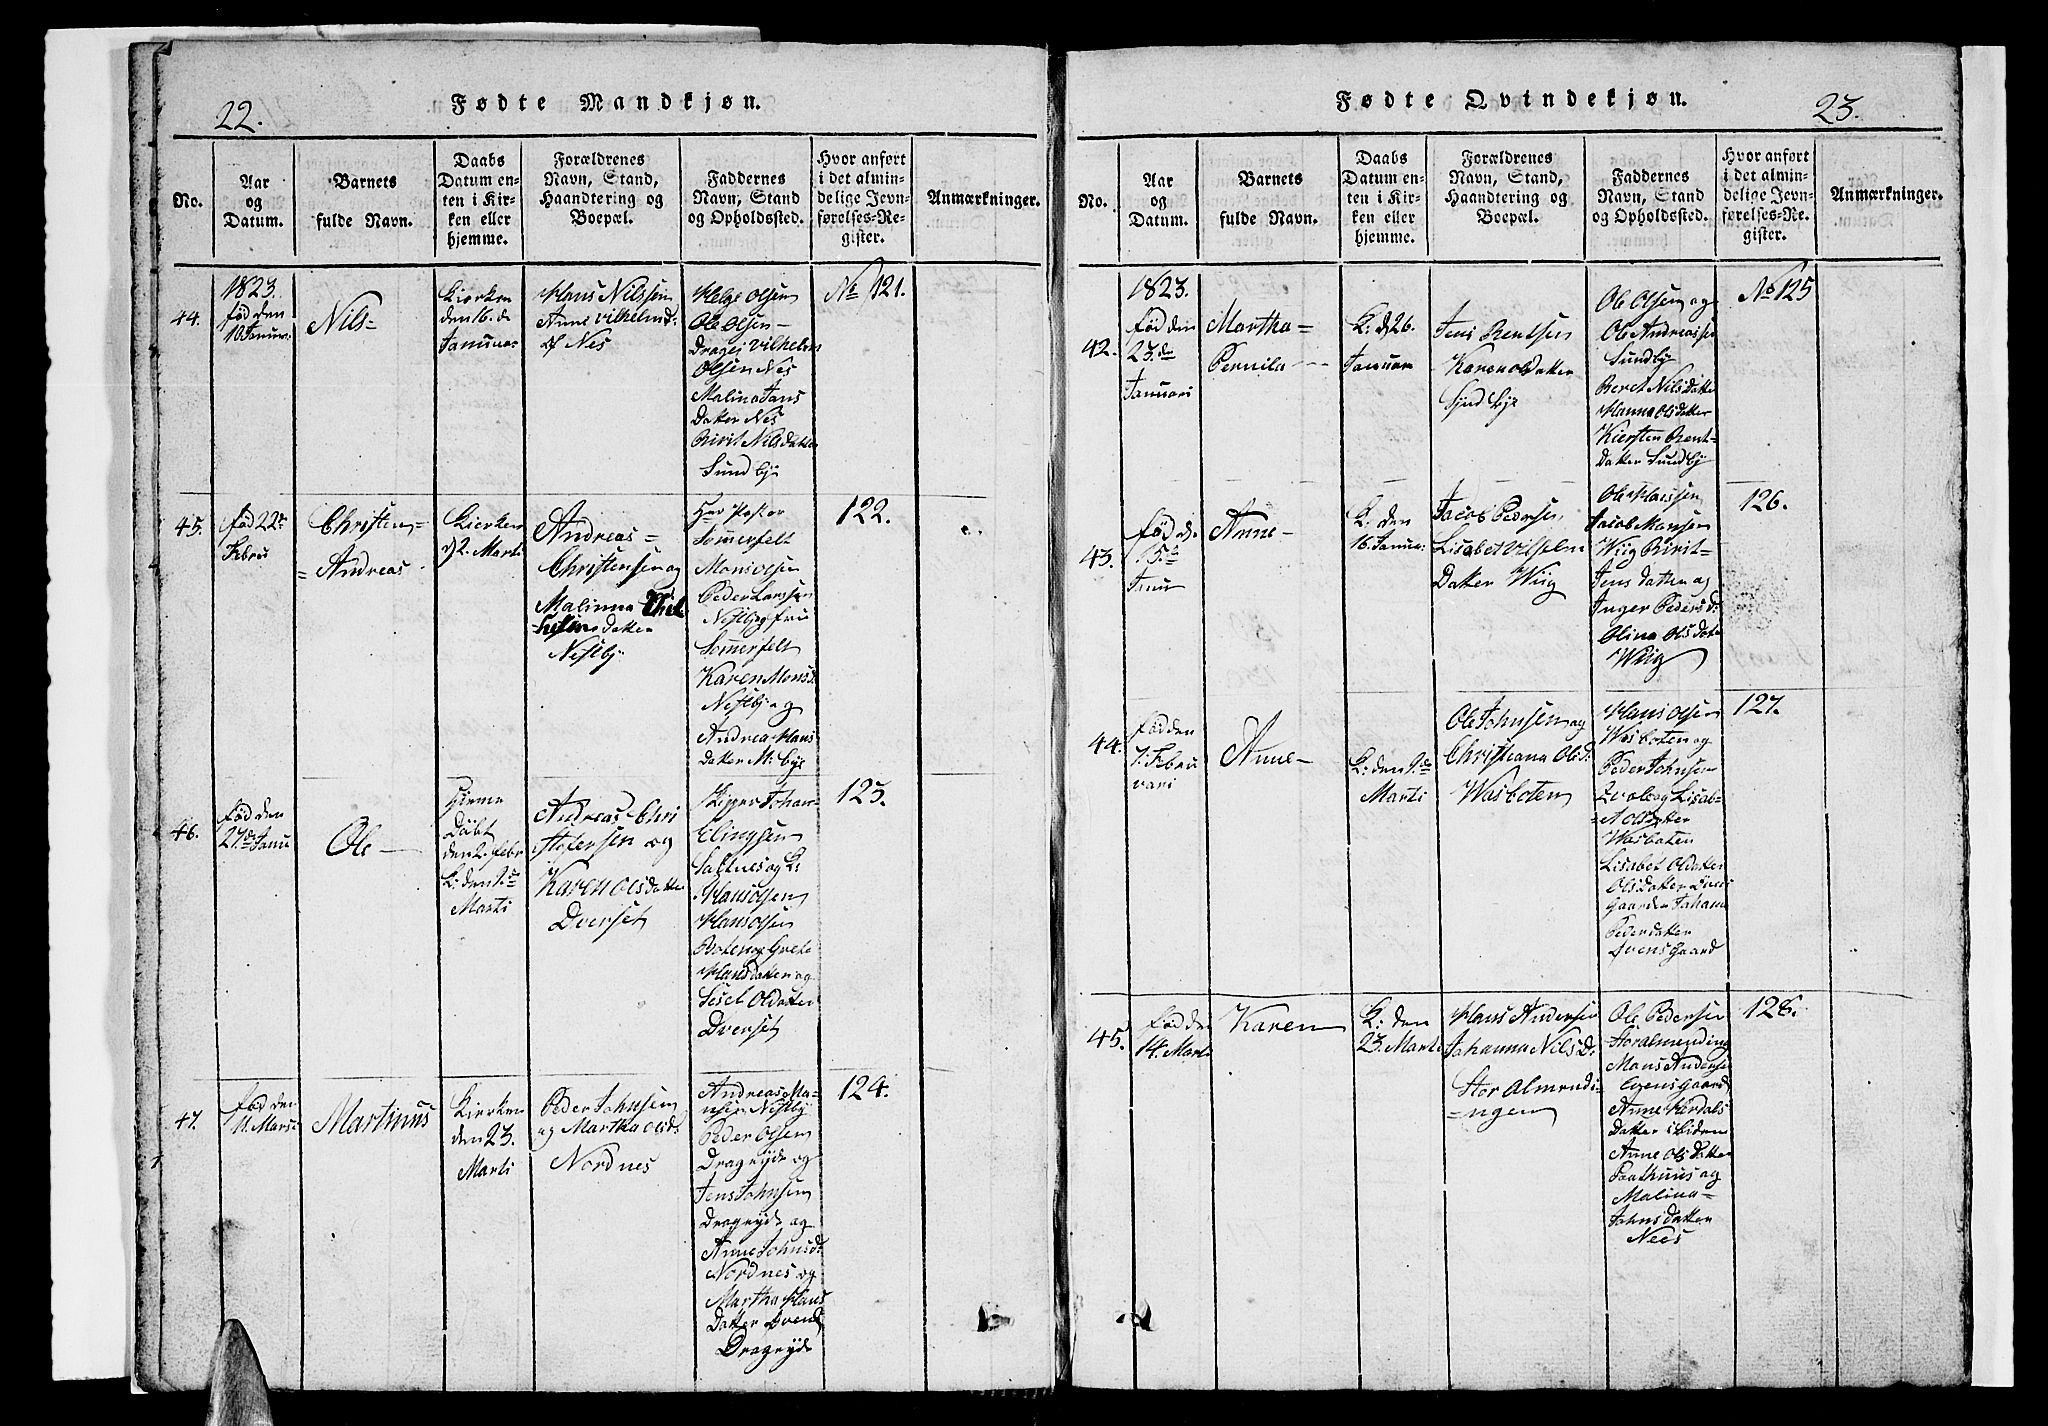 22.
Fødte Mandkjøn.
No.
Aar
og
Datum.
Barnets
fulde Navn.
Daabs
Datum en-
ten i Kir-
ken eller
hjemme.
Forældrenes
Navn, Stand,
Haandtering og
Boepæl.
Faddernes
Navn, Stand
og Opholdssted.
Hvor anført
i det almin-
delige Jevn-
førelses-Re-
gister.
Anmærkninger.
44.
1823.
fød den
10 Januar
Nils-
Kierken
den 16. d
Januar
Hans Nilssen
Anne Vilhelmd:
Nes
Helge Olsen
Ole Olsen-
Dragej Vilhelm
Olsen Nes
Malina Jans
Datter Nes
Birit Nilsdatter
Sundby
No 121.
45.
fød 22de
Febru
Christen=
=Andreas
Kierken
d 2. Marti
Andreas=
Christensen og
Malinna
datter
Nestby
Her Pastor
Sommerfelt
Monsolsen
Peder Larssen
Nestby fru
Sommerfelt
Karen Monsd.
Nestby og
Andrea Hans
Datter
122.
46.
fød den
27de Janu
Ole-
Hieme
Døbt
den 2. febr
K: den 9de
Marti
Andreas Chri
stofersen og
Karen Olsdatter
Dverset
Johan-
Elingsen
Saltnes og K:
Hans Olsen
Hans Olsen
Boten og Grete
Hansdatter og
Sesel Olsdatter
Dverset
123.
47.
fød den
11. Marti
Martinus
Kierken
den 23.
Marti
Peder Johnsen
og Martha Olsd:
Nordnes
Andreas Ma-
Nestby
Peder Olsen
Drageyde og
Jens Johnsen
Drageyde og
Anne Johnsd:
Nordnes og
Martha Hans
Datter
Drageyde
124.
Fødte Qvindekjøn.
23.
No.
Aar
og
Datum.
Barnets
fulde Navn.
Daabs
Datum en-
ten i Kir-
ken eller
hjemme.
Forældrenes
Navn, Stand,
Haandtering og
Boepæl.
Faddernes
Navn, Stand
og Opholdssted.
Hvor anført
i det almin-
delige Jevn-
førelses-Re-
gister.
Anmærkninger.
42.
1823.
fød den
23. de
Januari
Martha=
Pernila
K: d 26.
Januar
Jens Bentsen
Karen Oldatter
Ole Olsen og
Ole Andreassen
Sundby
Beret Nilsdatter
Hanna Olsdatter
Kiersten Bent-
datter Sundby
No 125
43.
fød d.
5de
Janu
Anne-
K: den
16. Januar
Jacob Pedersen
Lisabet Vilhelm
Datter Wiig
Ole Hanssen
Jacob Hansen
Wiig Birit-
Jens datter og
Inger Pedersd:
Olina Olsdatter
Wiig
126.
44.
fød den
7: Febru
vari
Anne-
K: den 9. de
Marti
Ole Johnsen og
Christeana Olsd:
Wasboten
Hans Olsen
Wasboten og
Peder Johnsen
Lisab-
Wasboten
Lisabet Oldatter
Olsdatter
gaarden Johanna
Pederdatter
Gaard
127.
45.
fød den
14. Marti
Karen
K: den
23. Marti
Hans Andersen
Johanna Nils D:
Stor Almendi=
=ngen
Ole Pedersen
Storalmending
Hans Andersen
Evensgaard
Anne Herdals
Datter i Liden
Anne Olsdatter
og
Malina-
Johns datter
Nees
128.